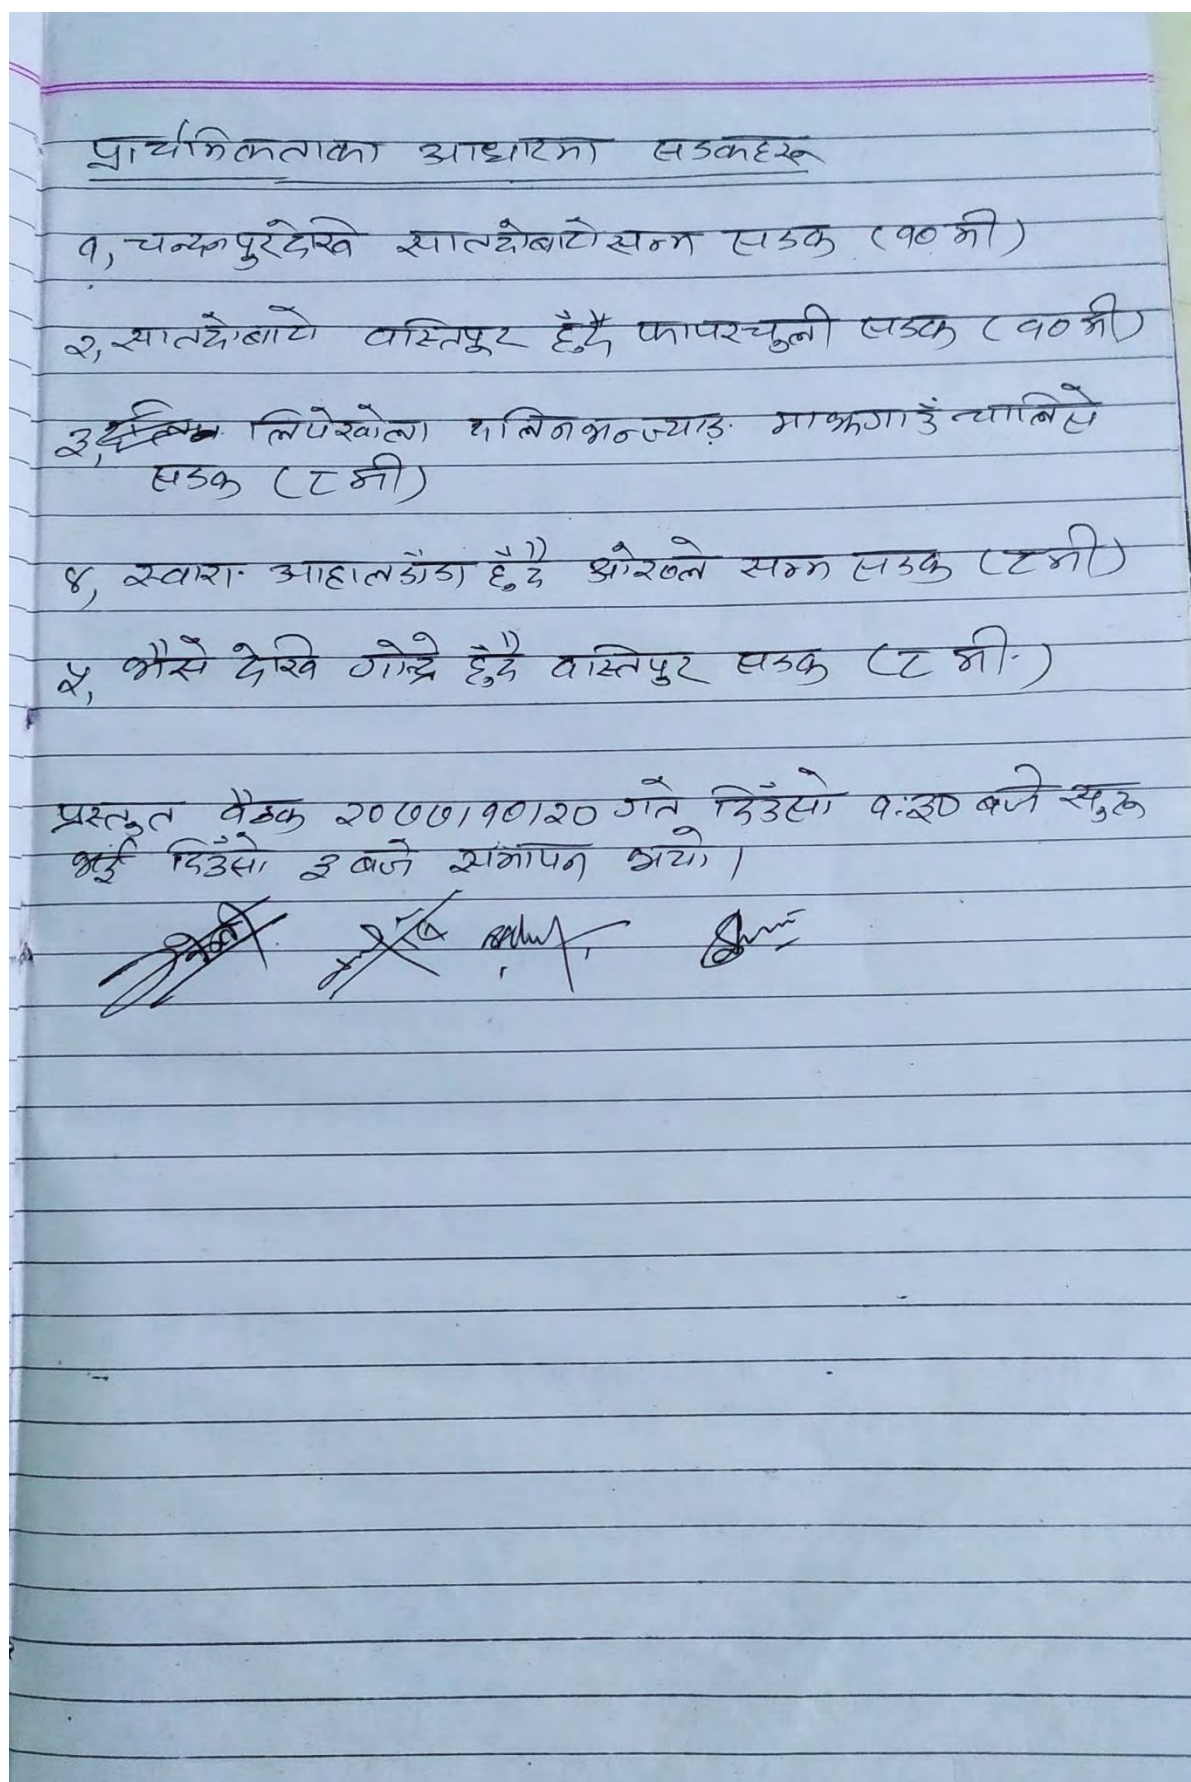 प्राथमिकताका आधारमा सडकहरू
१, चन्दनपुरदेखि सातदोबाटो सम्म सडक (१० मी)
२, सातदोबाटो वस्तिपुर हुँदै फापरचुली सडक (१० मी)
३, लिपेखोला दलिनभन्ज्याङ माझगाउँ चालिसे
सडक (८ मी)
४, स्वारा आहालडाँडा हुँदै ओख्ले सम्म सडक (८ मी)
५, भैसे देखि गोन्द्रे हुँदै वस्तिपुर सडक (८ मी.)
प्रस्तुत वैठक २०७७।१०।२० गते दिउँसो १:३० बजे सुरु
भई दिउँसो ३ बजे समापन भयो।